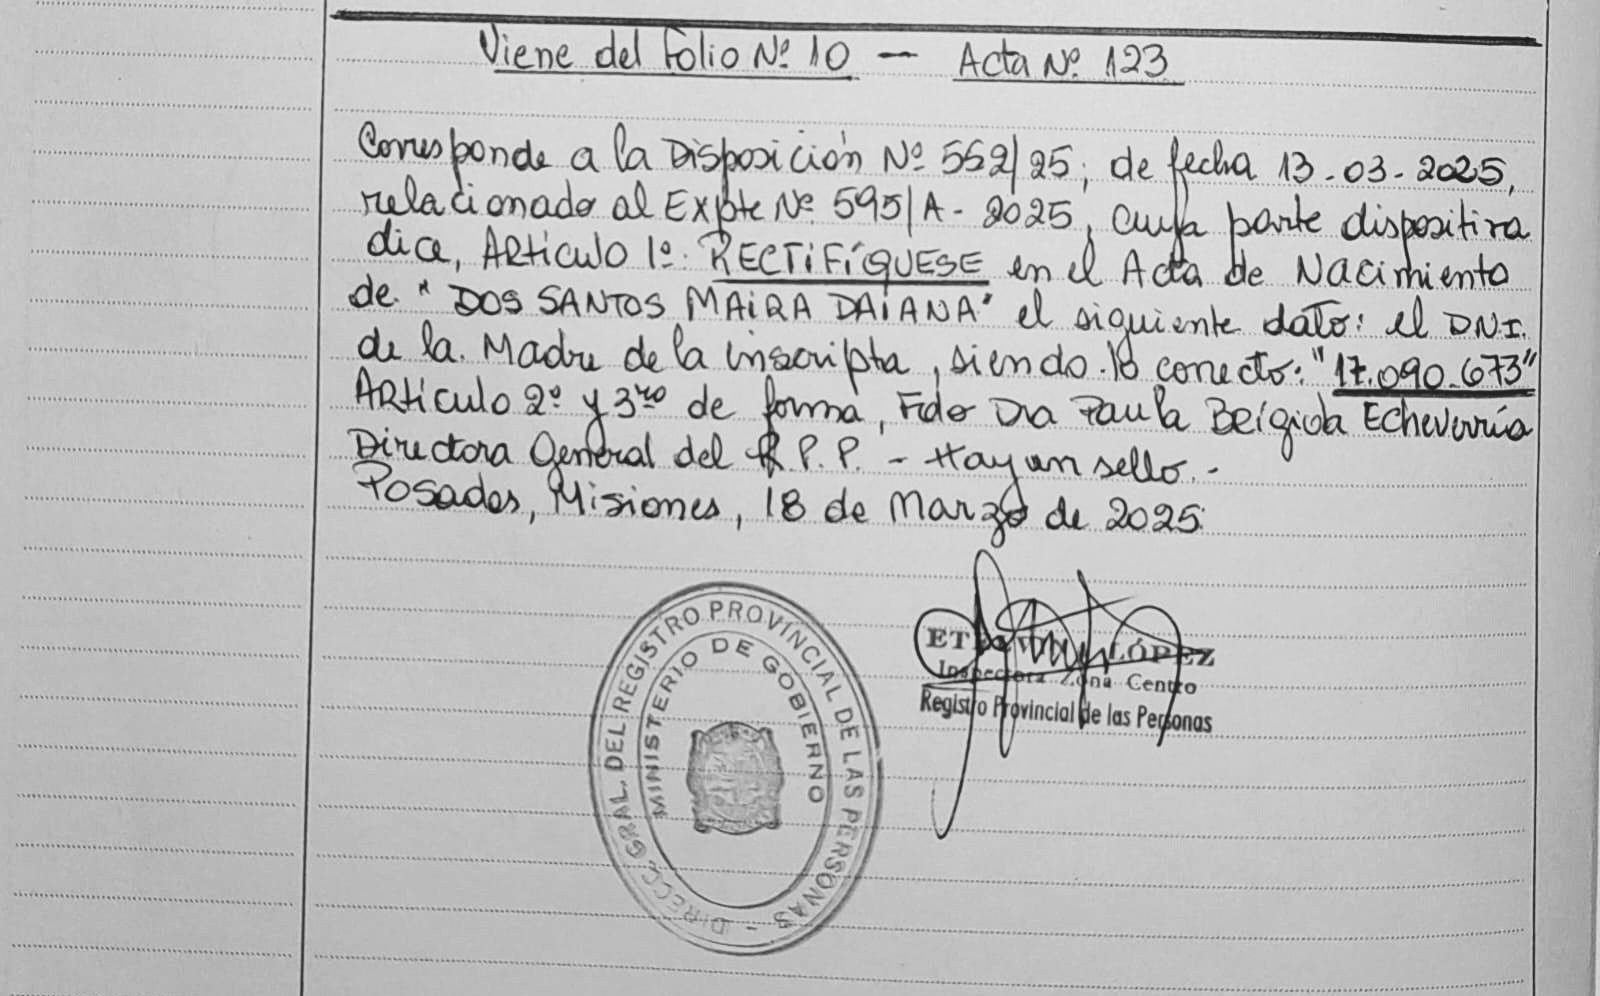 Viene del Folio Nº 10 — Acta Nº 123
Corresponde a la Disposición Nº 552/25, de fecha 13-03-2025,
relacionado al Expte Nº 595/A-2025, cuya parte dispositiva
dice, Articulo 1º. RECTIFÍQUESE en el Acta de Nacimiento
de "DOS SANTOS MAIRA DAIANA" el siguiente dato: el D.N.I.
de la Madre de la inscripta, siendo lo correcto: "17.090.673"
Artículo 2º y 3ro de forma, Fdo Dra Paula Echeverría
Directora General del R.P.P. - Hay un sello.-
Posadas, Misiones, 18 de Marzo de 2025.
DIRECC. GRAL. DEL REGISTRO PROVINCIAL DE LAS PERSONAS -
MINISTERIO DE GOBIERNO
LÓPEZ
Inspectora Zona Centro
Registro Provincial de las Personas